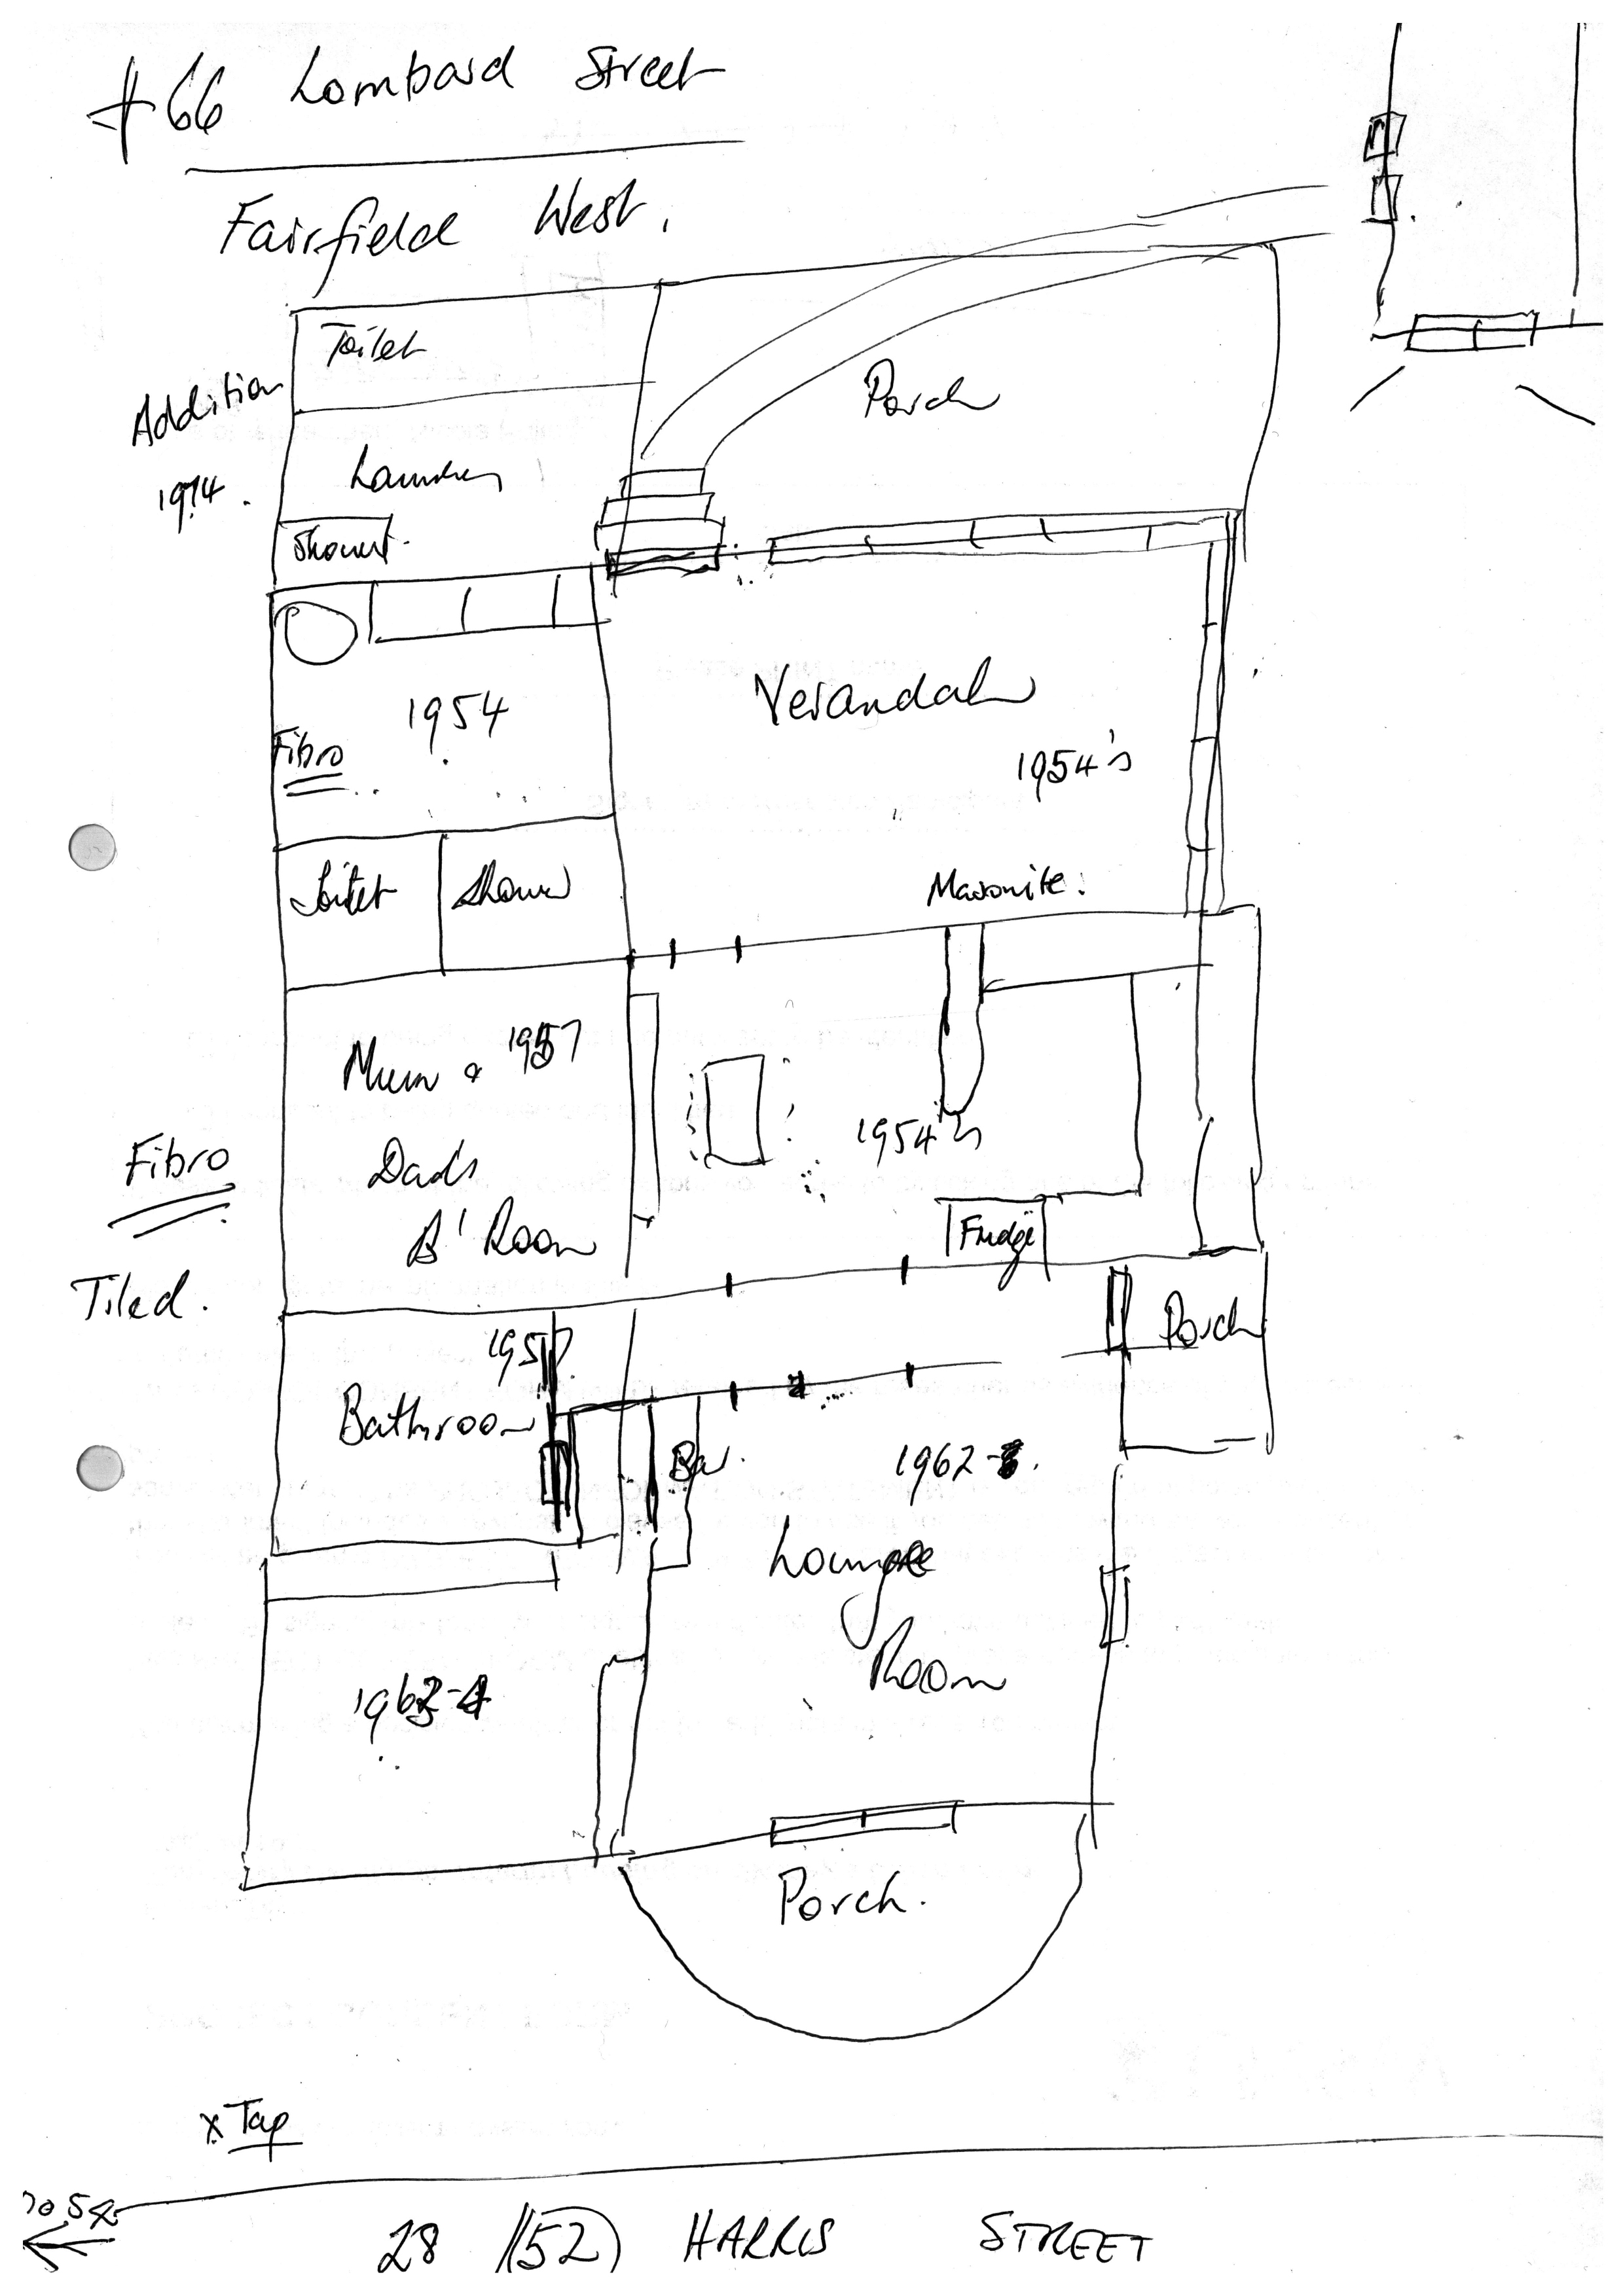 #66 Lombard Street
Fairfield West.
Toilet
Addition
1974.
Porch
Laundry
Shower.
1954
Fibro
Verandah
1954's
Toilet
Shower
Masonite.
Mum & 1957
Dad's
B'Room
1954's
Fibro
Tiled.
Fridge
Porch
1957
Bathroom
Bar.
1962-3.
Lounge
Room
1963-4
Porch.
x Tap
28 (52) HARRIS STREET